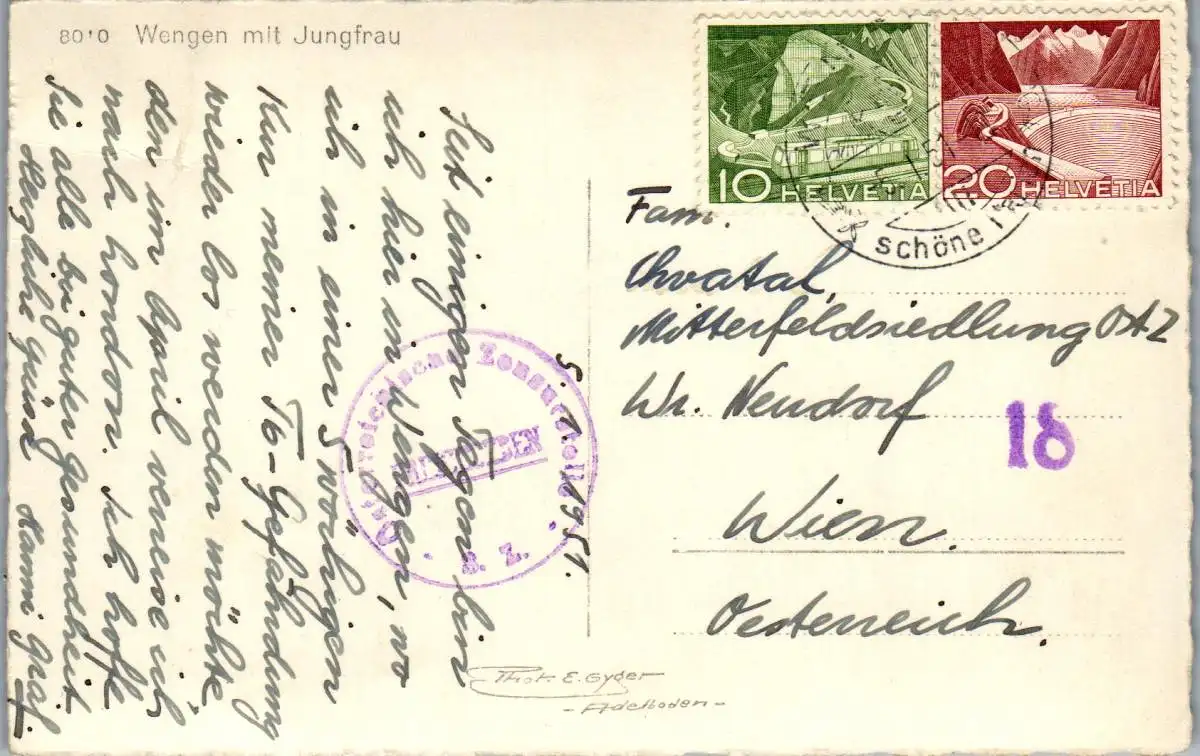 8010 Wengen mit Jungfrau
10 HELVETIA
20 HELVETIA
schöne
5. 1. 1951.
Seit einigen Tagen bin
ich hier in Wengen, wo
ich in einer 5 wöchigen
Kur meiner Tb-Gefährdung
wieder los werden möchte,
denn im April verreise ich
nach London. Ich hoffe
Sie alle bei guter Gesundheit.
Herzliche Grüsse Hanni Graf.
Österreichische Zensurstelle
S. Z.
Fam.
Chvatal,
Mitterfeldsiedlung
Wr. Neudorf
Wien.
Oesterreich.
18
Phot. E. Gyger
- Adelboden -